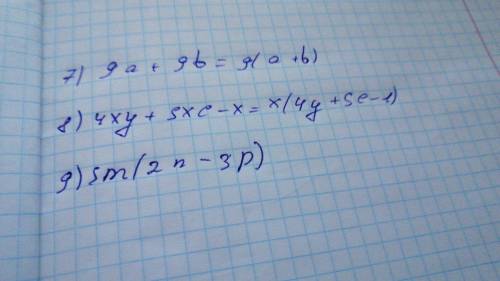 7) 9a + 9b = 9(a+b)
8) 4xy + 5xc - x = x(4y + 5c - 1)
9) 5m(2n - 3p)